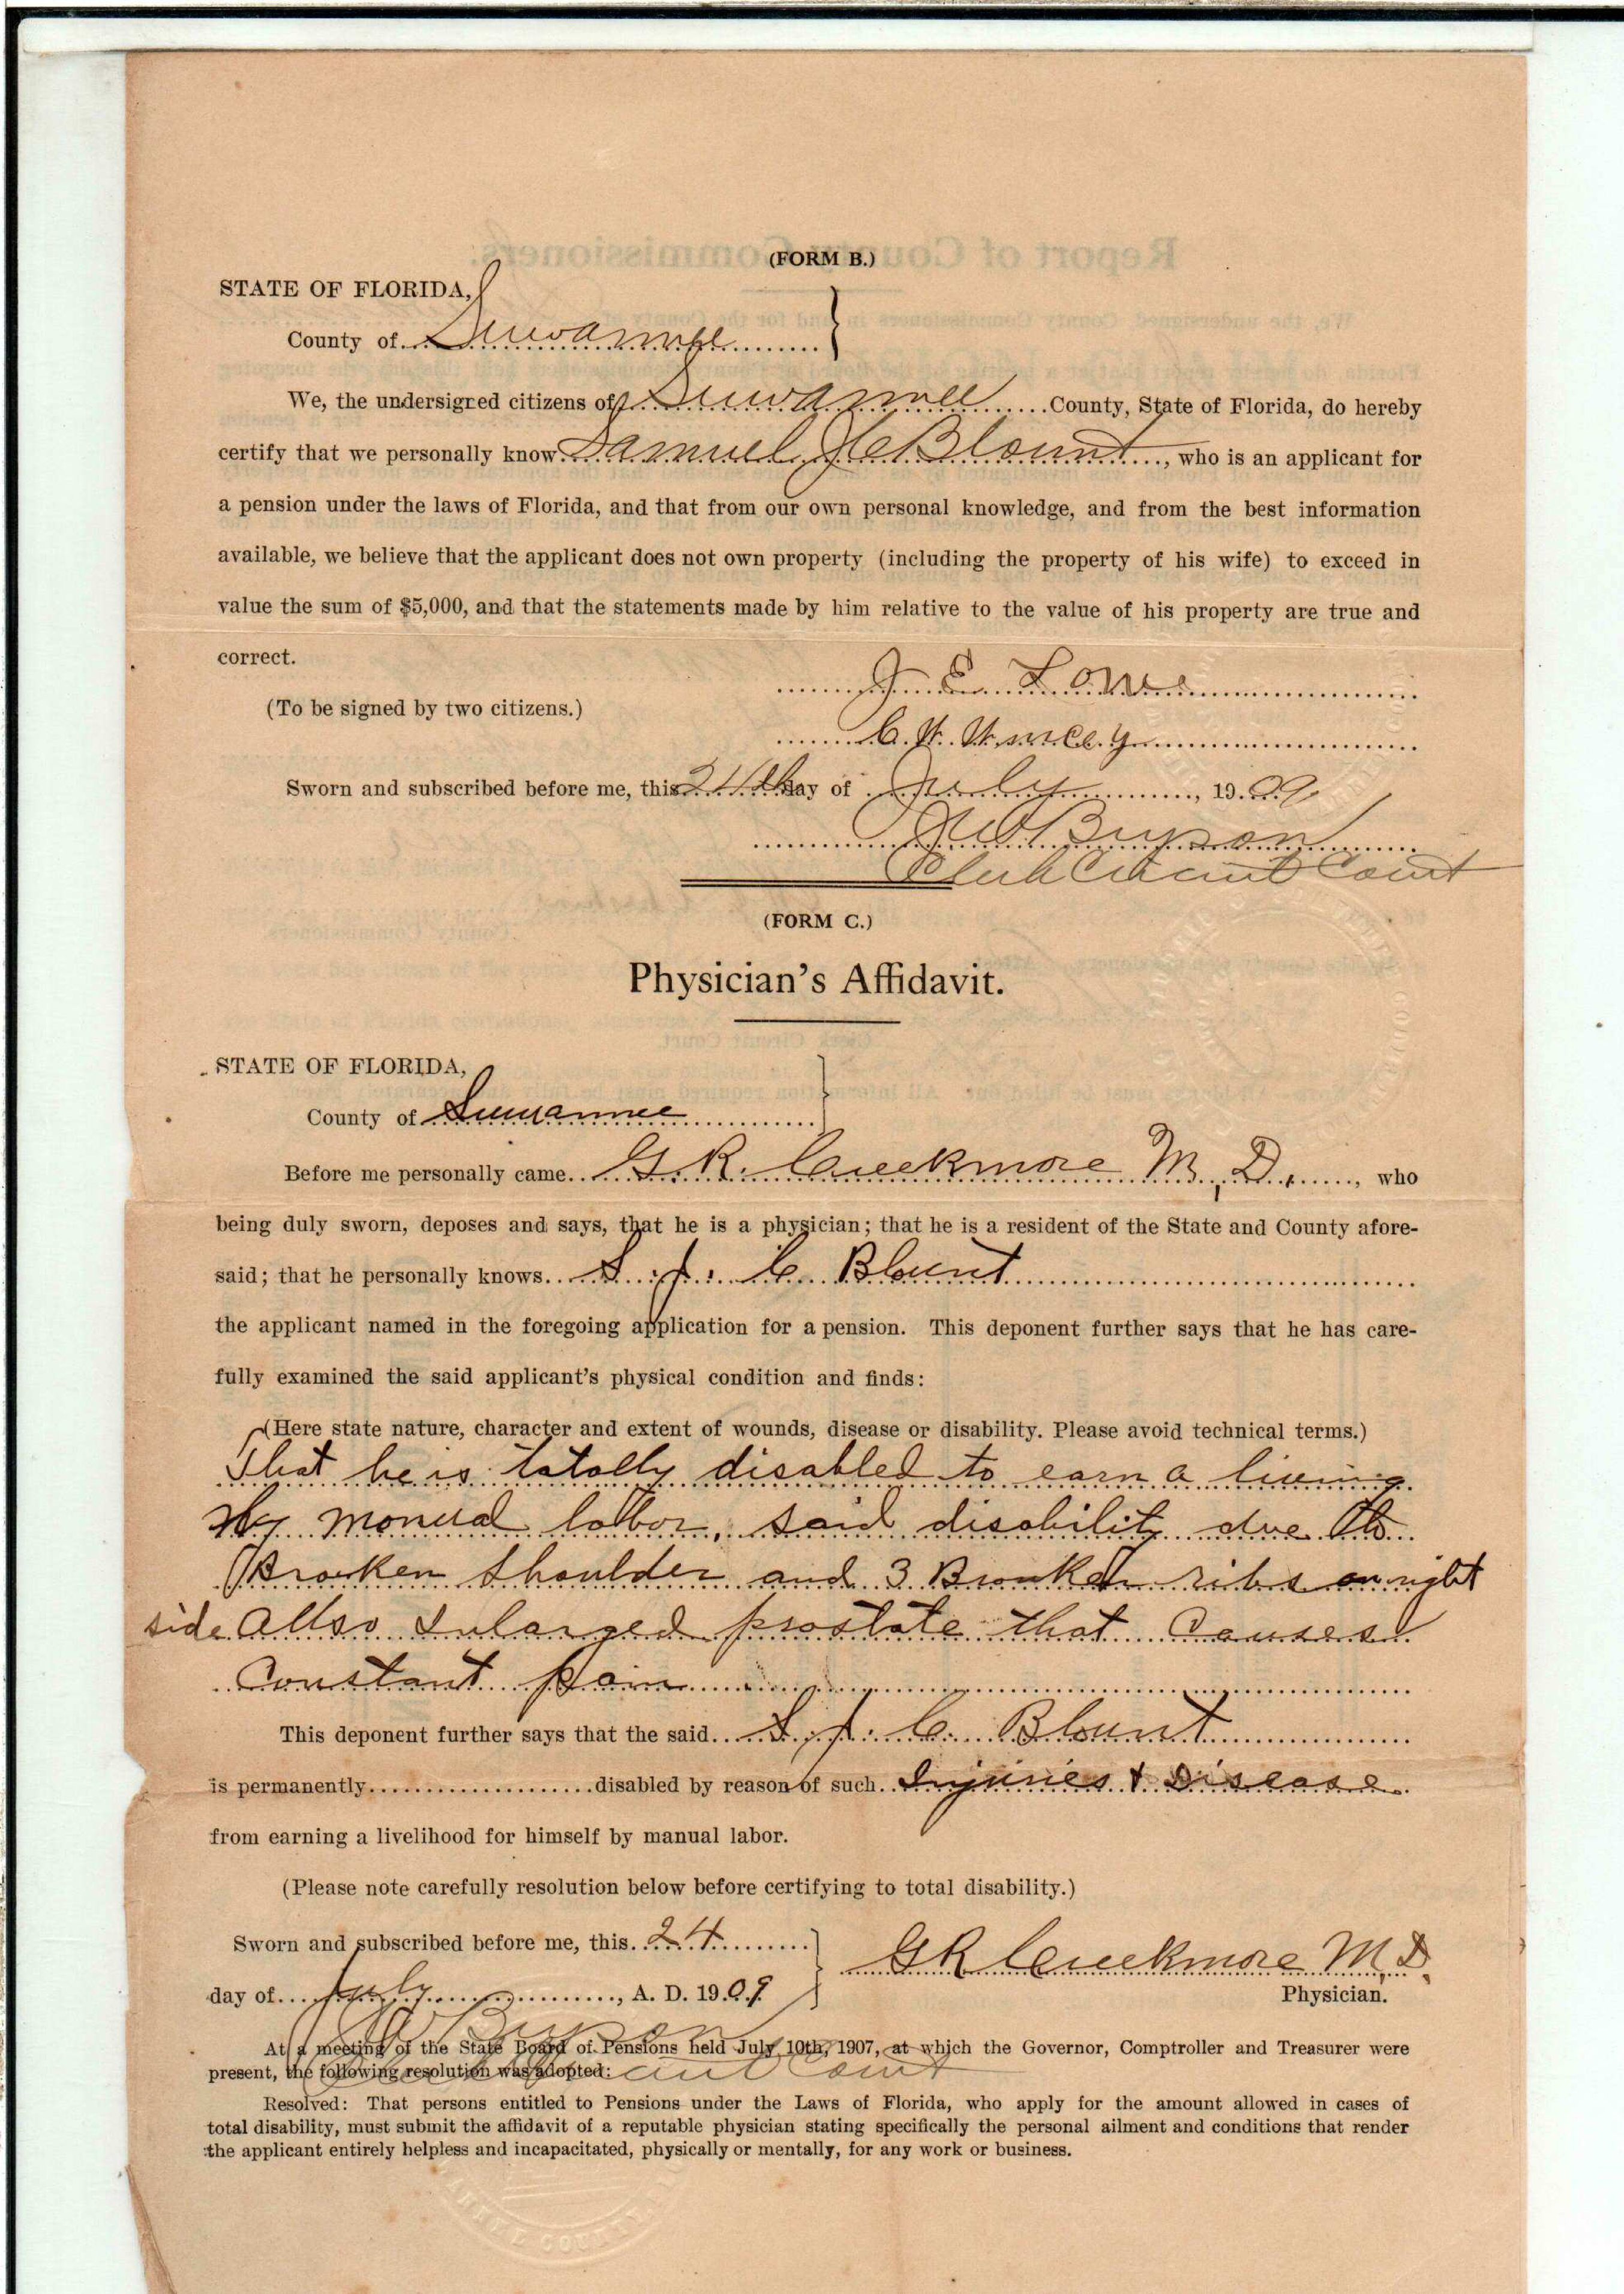 (FORM B.)
STATE OF FLORIDA,
County of Suwannee
We, the undersigned citizens of Suwannee County, State of Florida, do hereby
certify that we personally know Samuel J C Blount, who is an applicant for
a pension under the laws of Florida, and that from our own personal knowledge, and from the best information
available, we believe that the applicant does not own property (including the property of his wife) to exceed in
value the sum of $5,000, and that the statements made by him relative to the value of his property are true and
correct.
J E Lowe
(To be signed by two citizens.)
C. H.
Sworn and subscribed before me, this 24th day of July, 1909
J W Bryson
Clerk Circuit Court
(FORM C.)
Physician's Affidavit.
STATE OF FLORIDA,
County of Suwannee
Before me personally came G. R. Creekmore M, D., who
being duly sworn, deposes and says, that he is a physician; that he is a resident of the State and County afore-
said; that he personally knows S. J. C Blount
the applicant named in the foregoing application for a pension. This deponent further says that he has care-
fully examined the said applicant's physical condition and finds:
(Here state nature, character and extent of wounds, disease or disability. Please avoid technical terms.)
That he is totally disabled to earn a living
by monual labor, said disability due to
Broken shoulder and 3 Broken ribs on right
side allso Inlarged prostate that causes
Constant pain
This deponent further says that the said S. J. C. Blount
is permanently disabled by reason of such Injuries & Disease
from earning a livelihood for himself by manual labor.
(Please note carefully resolution below before certifying to total disability.)
Sworn and subscribed before me, this 24
G R Creekmore M, D,
day of July, A. D. 1909
Physician.
J W Bryson
Clerk Circuit Court
At a meeting of the State Board of Pensions held July 10th, 1907, at which the Governor, Comptroller and Treasurer were
present, the following resolution was adopted:
Resolved: That persons entitled to Pensions under the Laws of Florida, who apply for the amount allowed in cases of
total disability, must submit the affidavit of a reputable physician stating specifically the personal ailment and conditions that render
the applicant entirely helpless and incapacitated, physically or mentally, for any work or business.